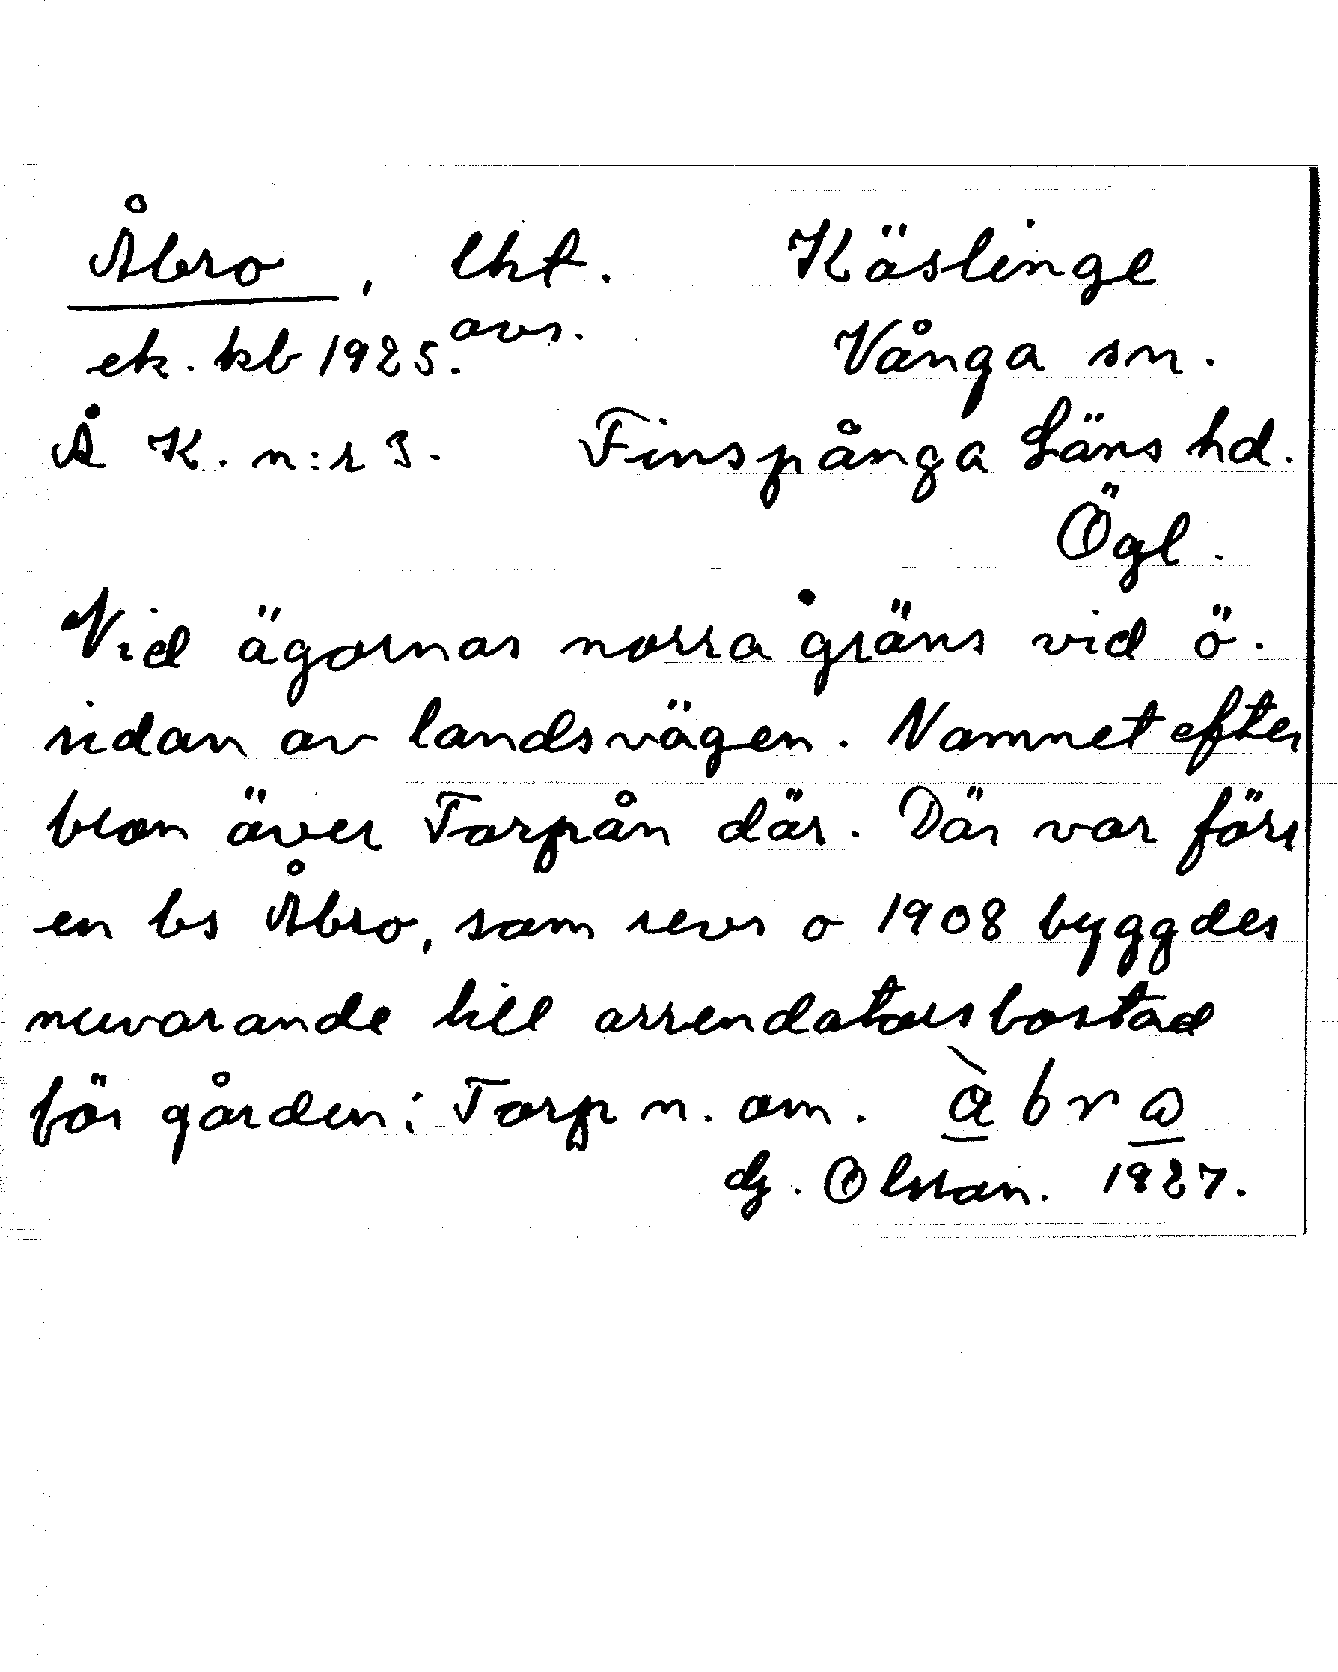 Åbro, lht. Käslinge
ek. kb 1925. avs. Vånga sn.
Å K. n:r 3. Finspånga Läns hd.
Ögl.
Vid ägornas norra gräns vid ö.
sidan av landsvägen. Namnet efter
bron över Torpån där. Där var förr
en bs Åbro, som revs o 1908 byggdes
nuvarande till arrendatorsbostad
för gården: Torp n. om. àbrω
dz. Olsson. 1927.